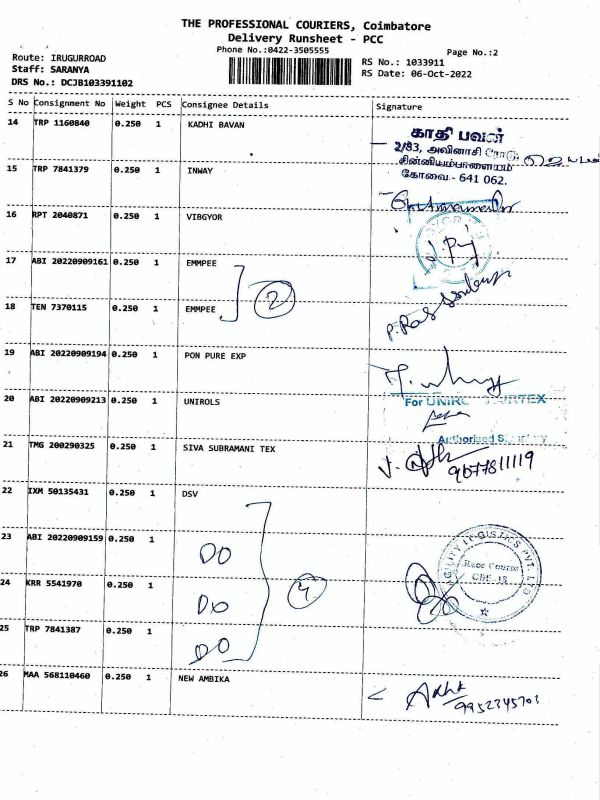 THE PROFESSIONAL COURIERS, Coimbatore
Delivery Runsheet - PCC
Phone No.:0422-3505555
Page No.:2
Route: IRUGURROAD
Staff: SARANYA
DRS No.: DCJB103391102
RS No.: 1033911
RS Date: 06-Oct-2022
S No Consignment No Weight PCS Consignee Details Signature
14 TRP 1160840 0.250 1 KADHI BAVAN
காதி பவன்
2/83, அவினாசி ரோடு
சின்னியம்பாளையம்
கோவை - 641 062.
15 TRP 7841379 0.250 1 INWAY
16 RPT 2040871 0.250 1 VIBGYOR
17 ABI 20220909161 0.250 1 EMMPEE
2
18 TEN 7370115 0.250 1 EMMPEE
19 ABI 20220909194 0.250 1 PON PURE EXP
20 ABI 20220909213 0.250 1 UNIROLS
For UNIRO AIRTEX
Authorised
21 TMG 200290325 0.250 1 SIVA SUBRAMANI TEX
9677811119
22 IXM 50135431 0.250 1 DSV
23 ABI 20220909159 0.250 1 DO
Race Course
CBE-18
24 KRR 5541970 0.250 1 DO
4
25 TRP 7841387 0.250 1 DO
26 MAA 568110460 0.250 1 NEW AMBIKA
9952345703